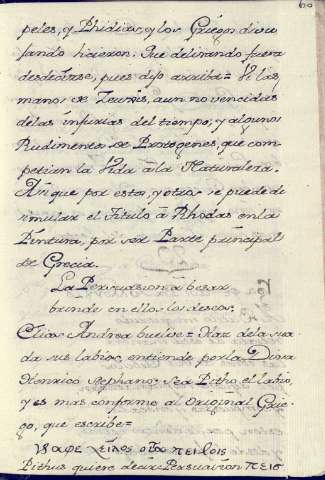 peles, y Phidias, y los Griegos disu
fando hicieron. Fue delirando fuera
desdecirse, pues dijo arriba=
manos de Zeuxis, aun no vencidas
de las injurias del tiempo, y algunos
Rudimentos de Protogenes, que com
petian la Vida à la Naturaleza.
Asi que por estos, y otros se puede di
simular el titulo à Rhodas en la
Pintura, por ser Parte principal
de Grecia.
La Persuasion à besar
brinde en ellos los deseos.
Elias Andrea buelve= Haz de la sua
da sus labios, entiende por la Diosa
Henrico Stephano= sea Pitho el labio,
y es mas conforme al original Grie
go, que escribe=
γραφε χειλος οια πειθοις
Pithus quiere decir Persuasion πειθ